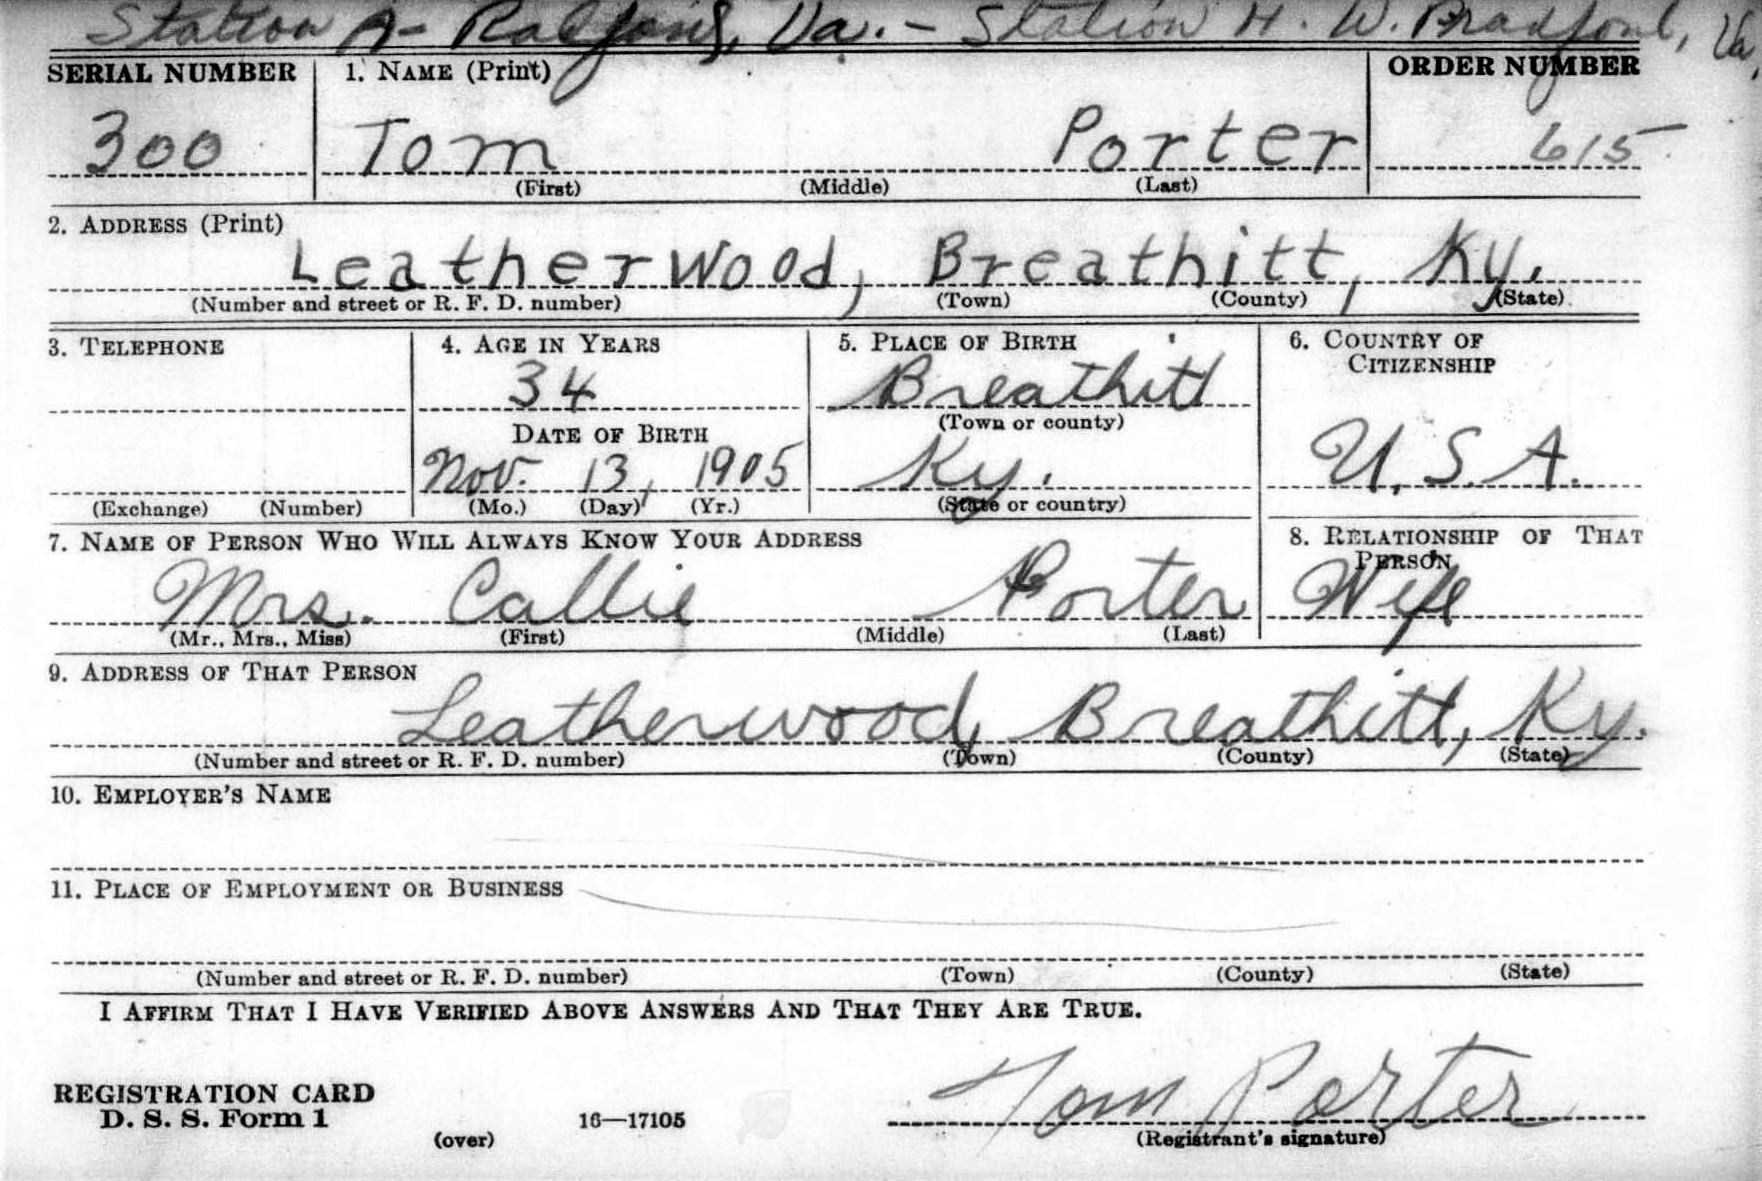 Station A- Radford, Va. - Station H. W. Bradford, Va.
SERIAL NUMBER 1. NAME (Print) ORDER NUMBER
300 Tom Porter 615
(First) (Middle) (Last)
2. ADDRESS (Print)
Leatherwood, Breathitt, Ky.
(Number and street or R. F. D. number) (Town) (County) (State)
3. TELEPHONE 4. AGE IN YEARS 5. PLACE OF BIRTH 6. COUNTRY OF CITIZENSHIP
34 Breathitt
(Town or county)
DATE OF BIRTH
Nov. 13, 1905 Ky. U.S.A.
(Exchange) (Number) (Mo.) (Day) (Yr.) (State or country)
7. NAME OF PERSON WHO WILL ALWAYS KNOW YOUR ADDRESS 8. RELATIONSHIP OF THAT PERSON
Mrs. Callie Porter Wife
(Mr., Mrs., Miss) (First) (Middle) (Last)
9. ADDRESS OF THAT PERSON
Leatherwood, Breathitt, Ky.
(Number and street or R. F. D. number) (Town) (County) (State)
10. EMPLOYER'S NAME
11. PLACE OF EMPLOYMENT OR BUSINESS
(Number and street or R. F. D. number) (Town) (County) (State)
I AFFIRM THAT I HAVE VERIFIED ABOVE ANSWERS AND THAT THEY ARE TRUE.
REGISTRATION CARD
D. S. S. Form 1 16—17105 Tom Porter
(over) (Registrant's signature)